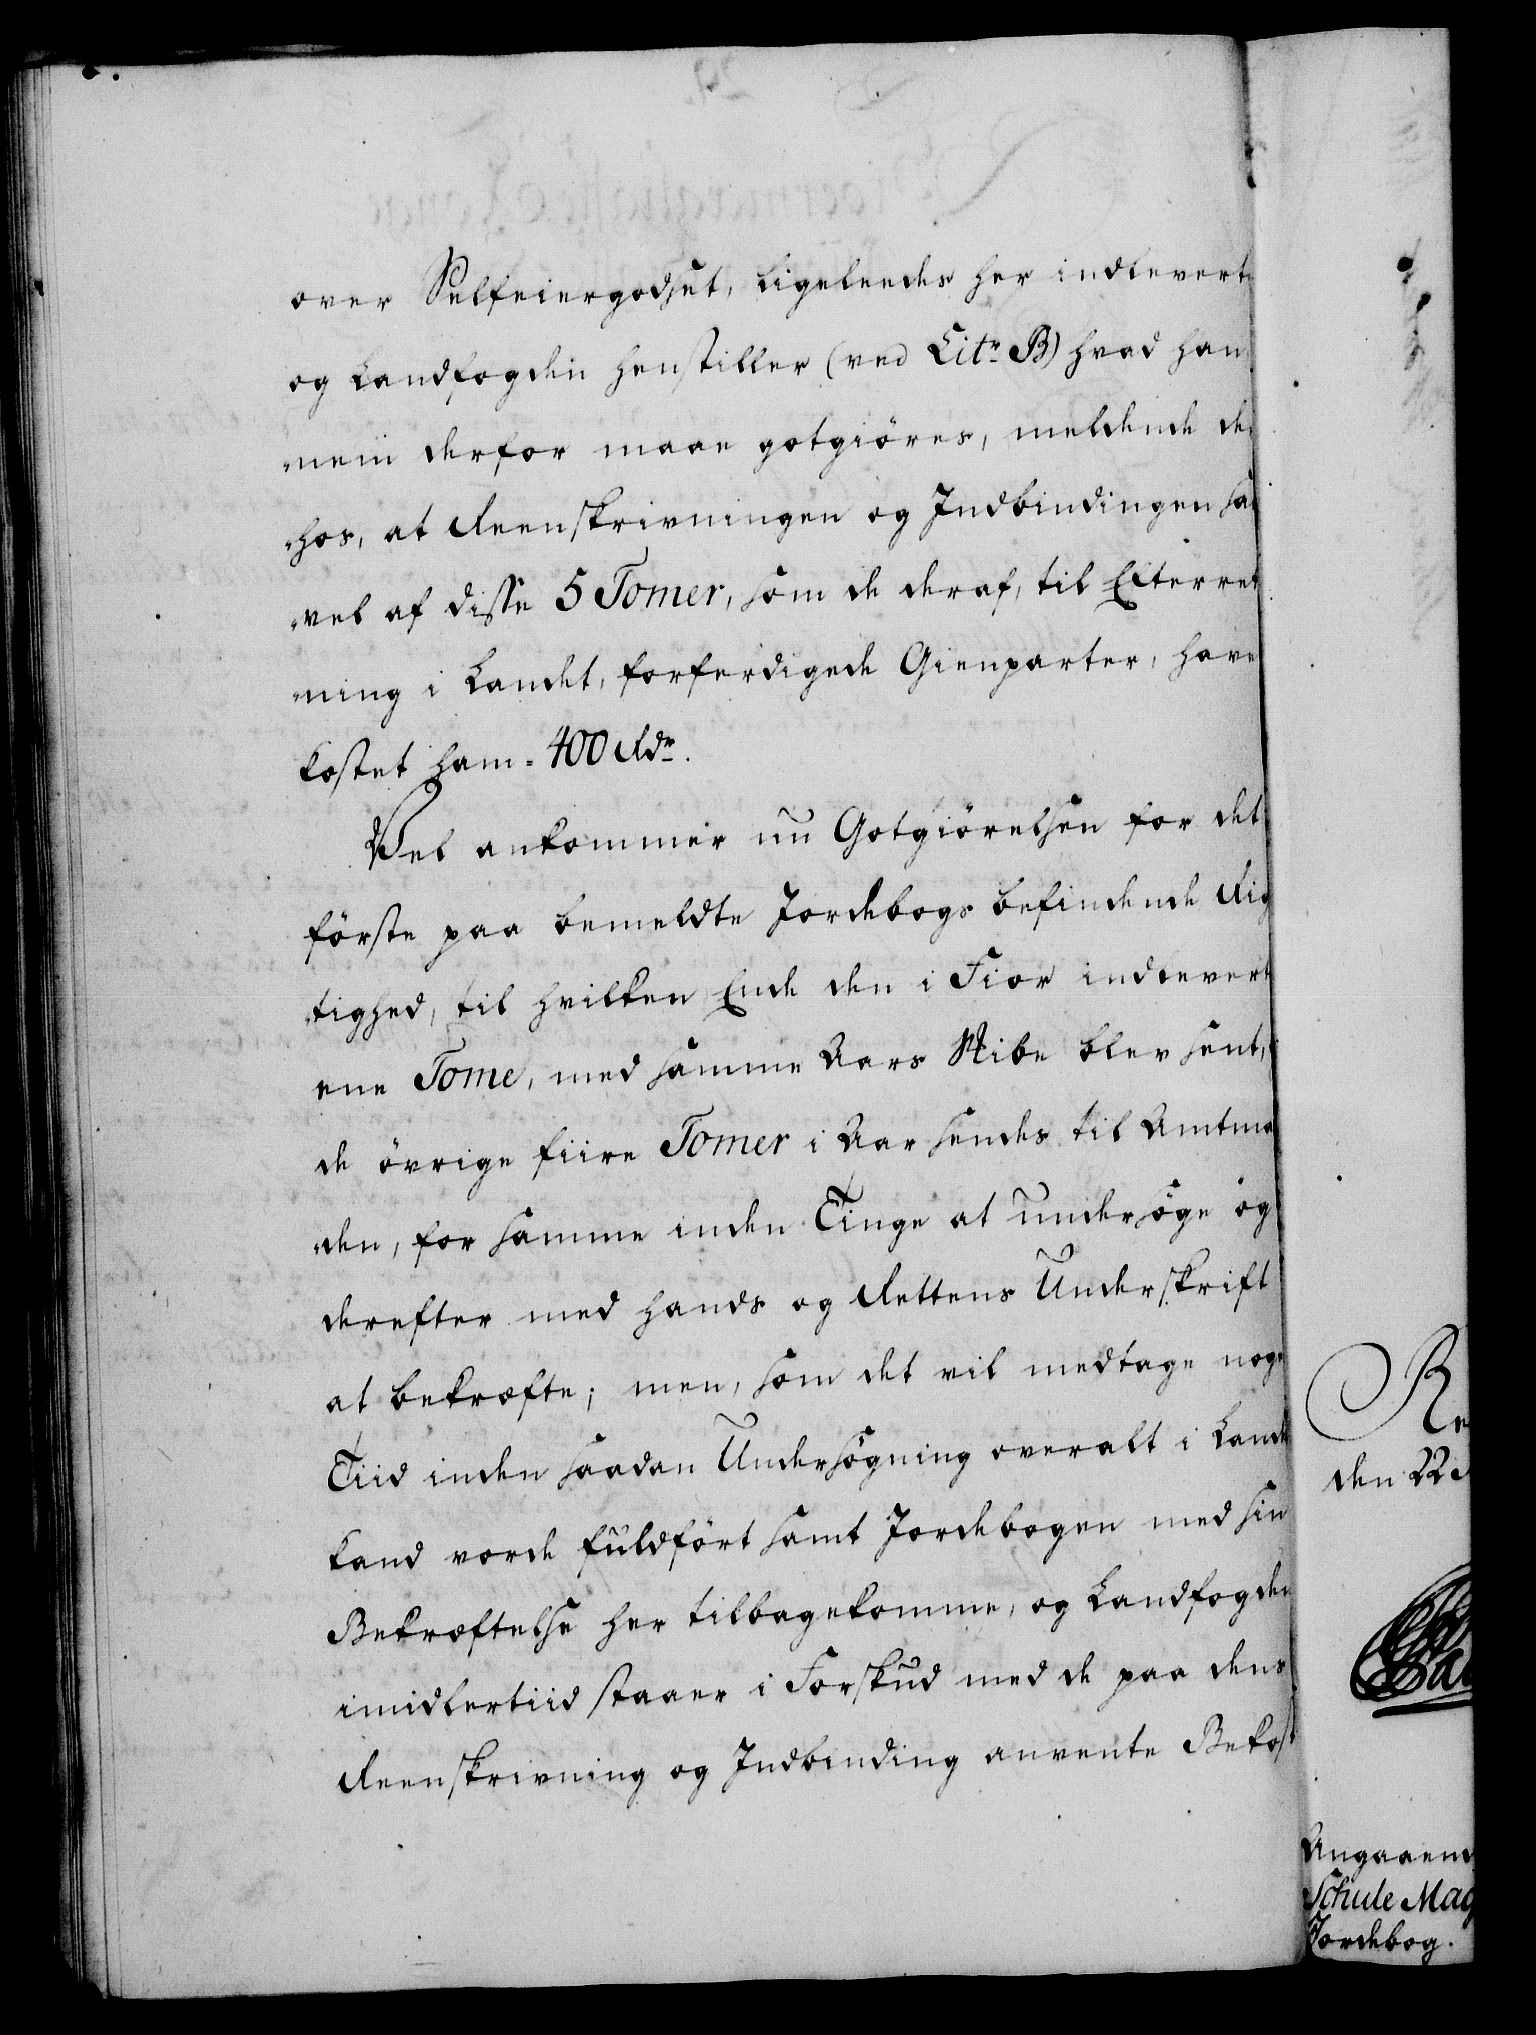 over Selfeiergodset, ligeledes her indlevert
og Landfogden henstiller (ved Litr B) hvad han
mein derfor maae gotgiöres, meldende der
hos, at Reenskrivningen og Indbindingen saa
vel af disse 5 Tomer, som de deraf, til Efterret
ning i Landet, forferdigede Gienparter, have
kostet ham = 400 Rdr.
Vel ankommer nu Gotgiörelsen for det
förste paa bemeldte Jordebogs befindende Rig
tighed, til hvilken Ende den i Fior indlevert
ene Tome, med samme Aars Skibe blev sent,
de övrige fiire Tomer i Aar sendes til Amtma
den, for samme inden Tinge at undersöge og
derefter med hands og Rettens Underskrift
at bekræfte; men, som det vil medtage noge
Tiid inden saadan Undersögning overalt i Lande
kand vorde fuldfört samt Jordebogen med sin
Bekræftelse her tilbagekomme, og Landfogden
imidlertiid staaer i Forskud med de paa dens
Reenskrivning og Indbinding anvente Bekost
Re
den 22
Angaaend
Schule Mag
Jordebog.